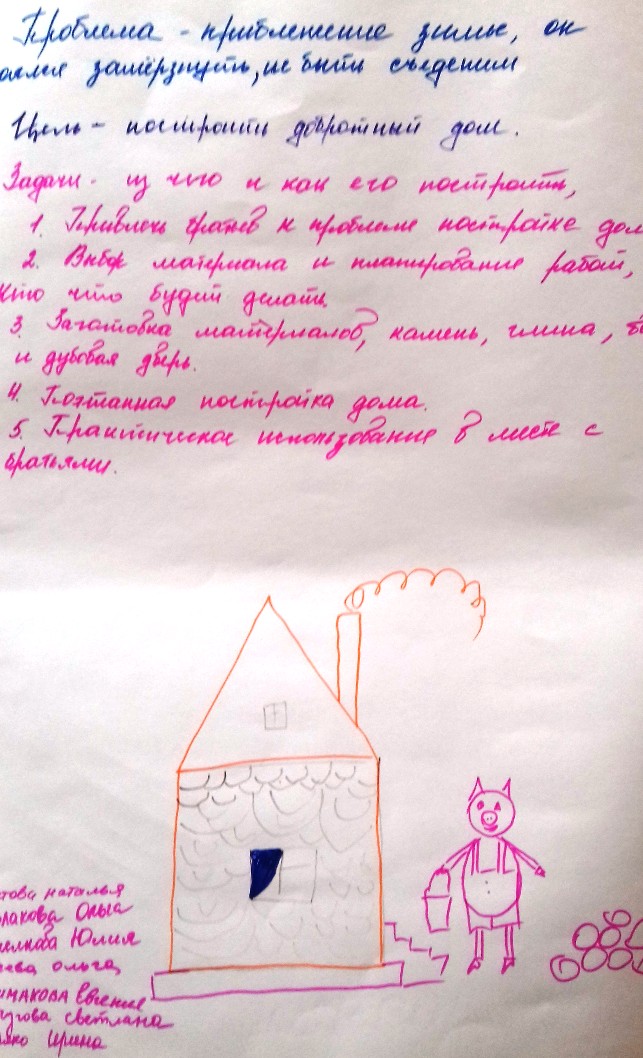 Проблема - приближение зимы, он
замёрзнуть, не быть съеденим
Цель - построить добротный дом.
Задачи - из чего и как его построить,
1. Привлечь братьев к проблеме постройке дом
2. Выбор материала и планирование работ,
Кто что будет делать.
3. Заготовка материалов, камень, глина,
и дубовая дверь.
4. Поэтапная постройка дома.
5. Практическое использование в месте с
братьями.
наталья
Ольга
Юлия
ольга
Евгения
светлана
Ирина